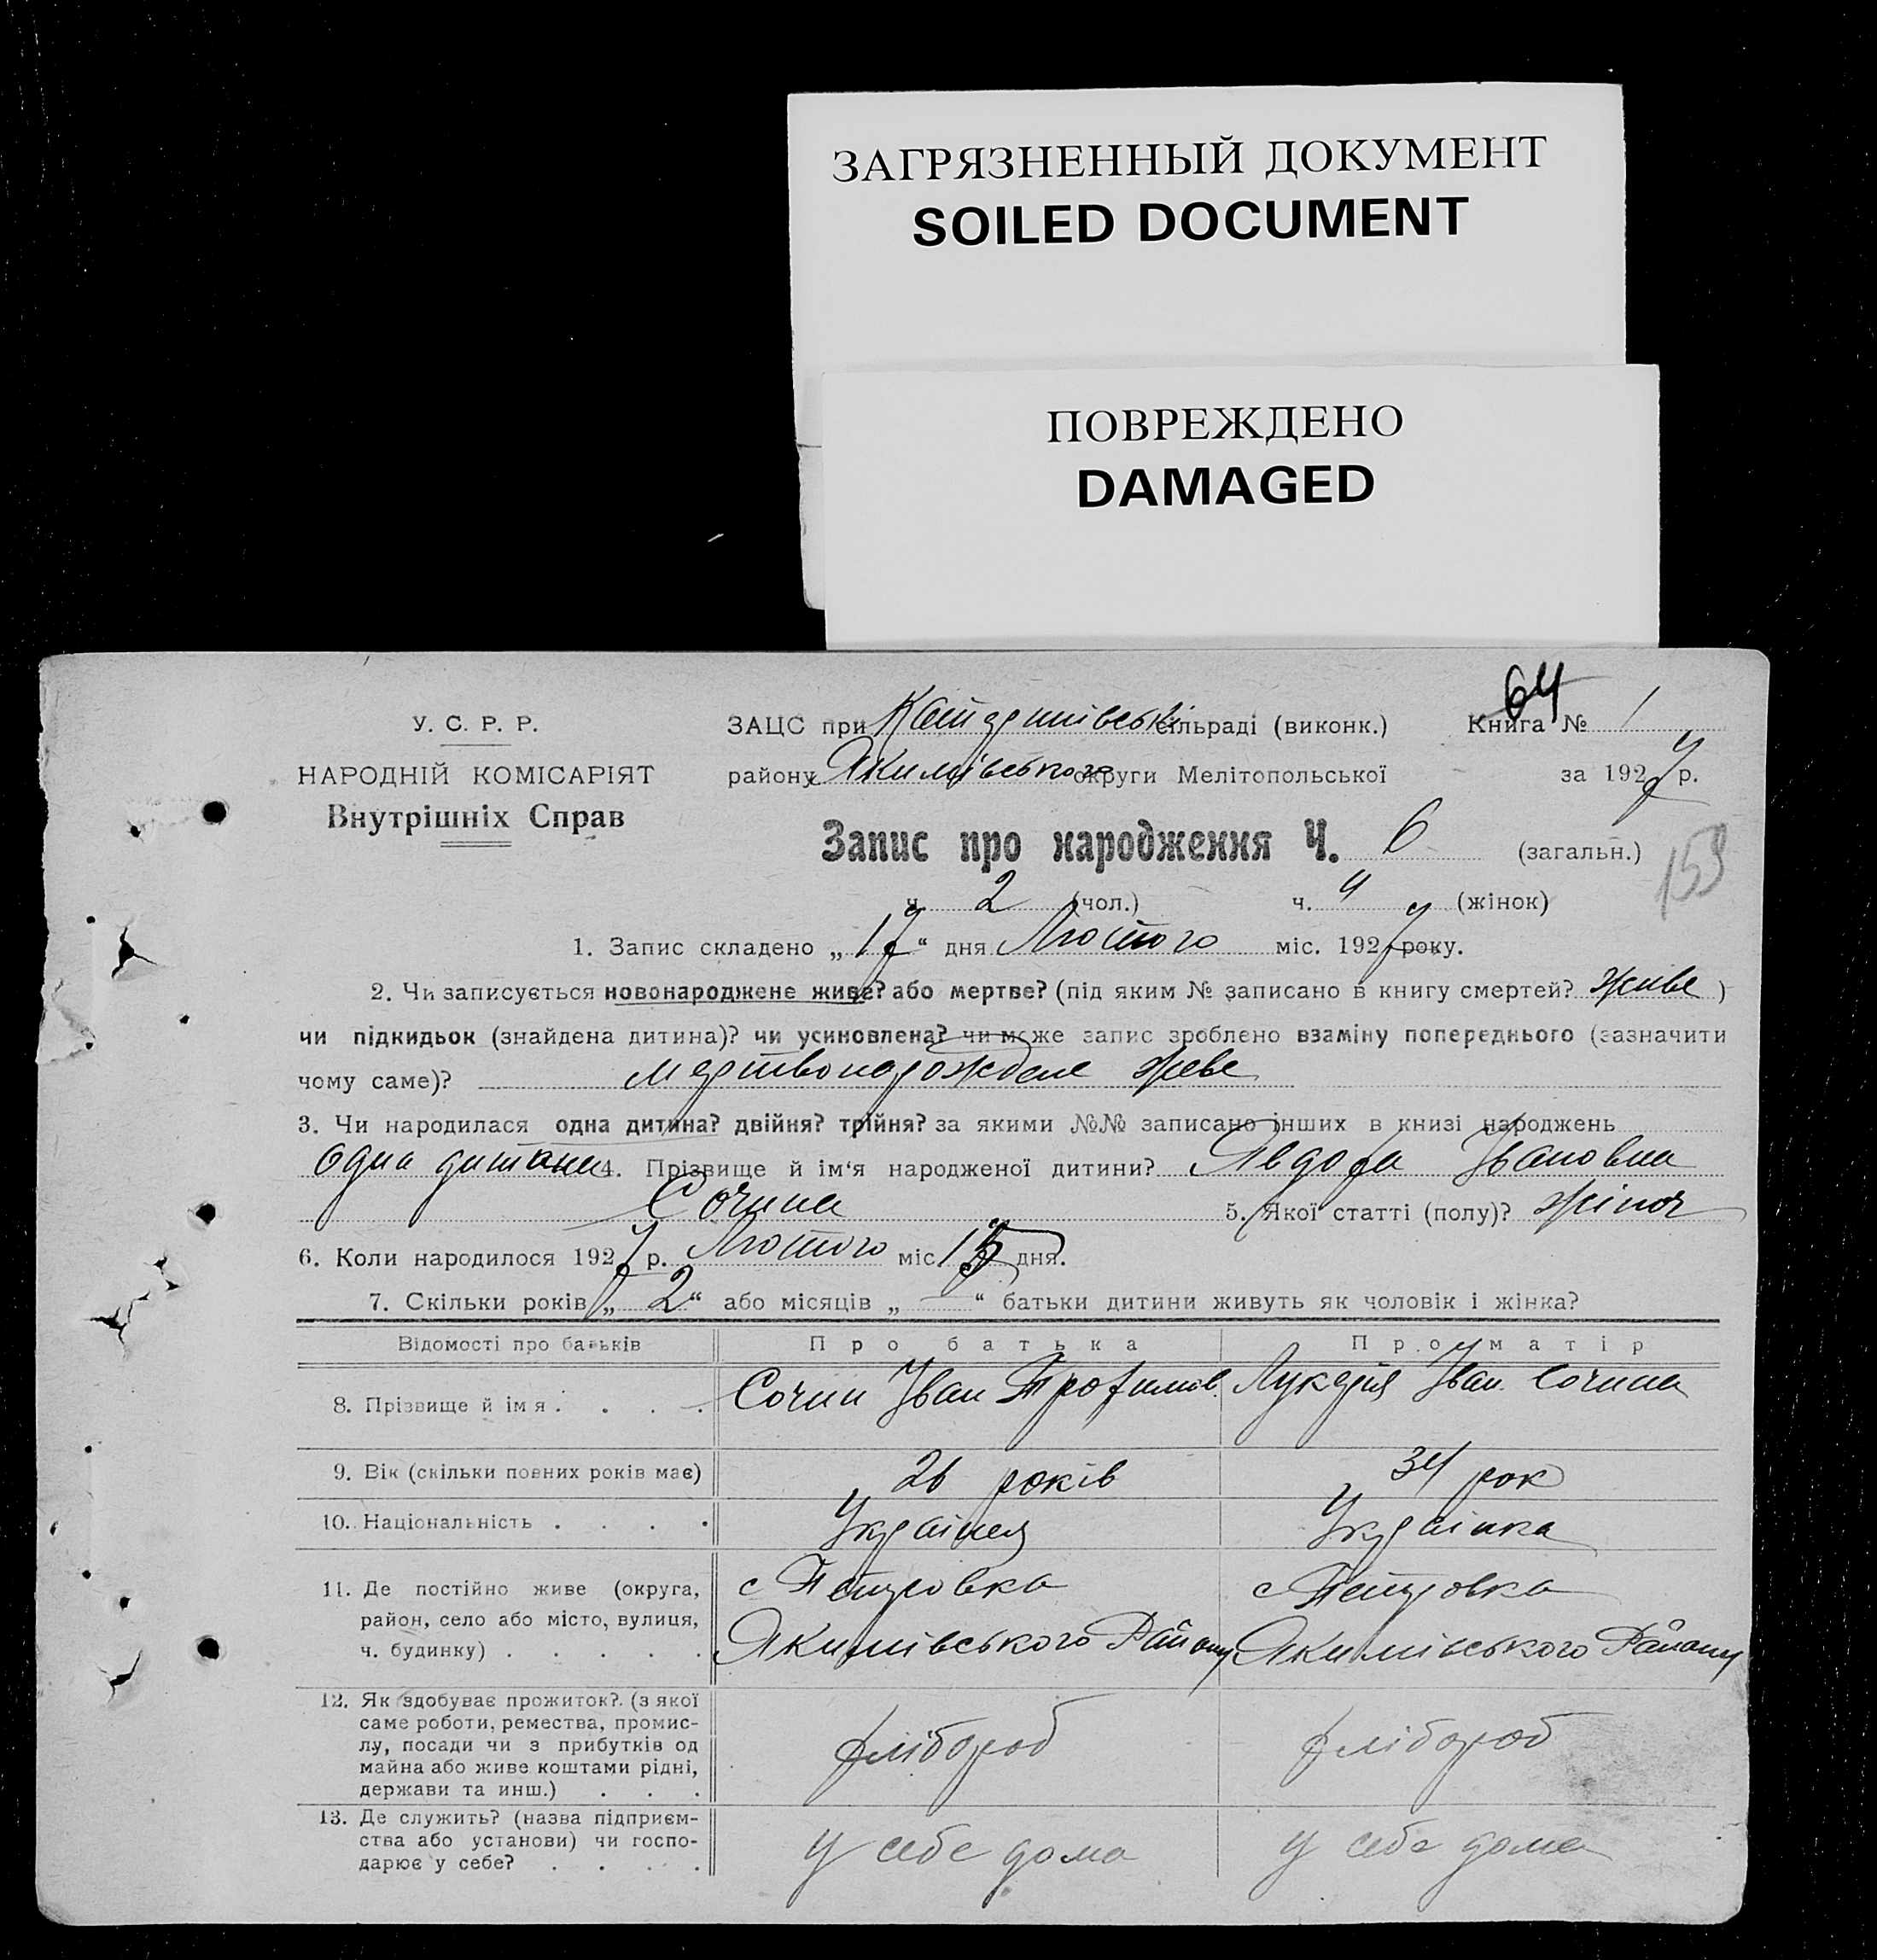 ЗАГРЯЗНЕННЫЙ ДОКУМЕНТ
SOILED DOCUMENT
ПОВРЕЖДЕНО
DAMAGED
64
У. С. Р. Р.
НАРОДНІЙ КОМІСАРІЯТ
Внутрішніх Справ
ЗАЦС при сільраді (виконк.) Книга № 1
району Якимівського округи Мелітопольської за 1927 р.
Запис про народження Ч. 6 (загальн.)
153
ч. 2 (чол.) ч. 4 (жінок)
1. Запис складено „17“ дня Лютого міс. 1927 року.
2. Чи записується новонароджене живе? або мертве? (під яким № записано в книгу смертей? живе )
чи підкидьок (знайдена дитина)? чи усиновлена? чи може запис зроблено взаміну попереднього (зазначити
чому саме)?
3. Чи народилася одна дитина? двійня? трійня? за якими №№ записано інших в книзі народжень
одна дитина 4. Прізвище й ім‘я народженої дитини? Явдоха Івановна
Сочина 5. Якої статті (полу)? жіноч
6. Коли народилося 1927 р. Лютого міс. 15 дня.
7. Скільки років „2“ або місяців „—“ батьки дитини живуть як чоловік і жінка?
Відомості про батьків Про батька Про матір
8. Прізвище й імя . . . . Сочин Іван Трофимов. Лукерія Іван. Сочина
9. Вік (скільки повних років має) 26 років 34 рок
10. Національність . . . . Українец Українка
11. Де постійно живе (округа, с Петровка с Петровка
район, село або місто, вулиця,
ч. будинку) . . . . . Якимівського Району Якимівського Району
12. Як здобуває прожиток? (з якої
саме роботи, ремества, промис-
лу, посади чи з прибутків од хлібороб хлібороб
майна або живе коштами рідні,
держави та инш.) . . .
13. Де служить? (назва підприєм-
ства або установи) чи госпо- у себе дома у себе дома
дарює у себе? . . . .